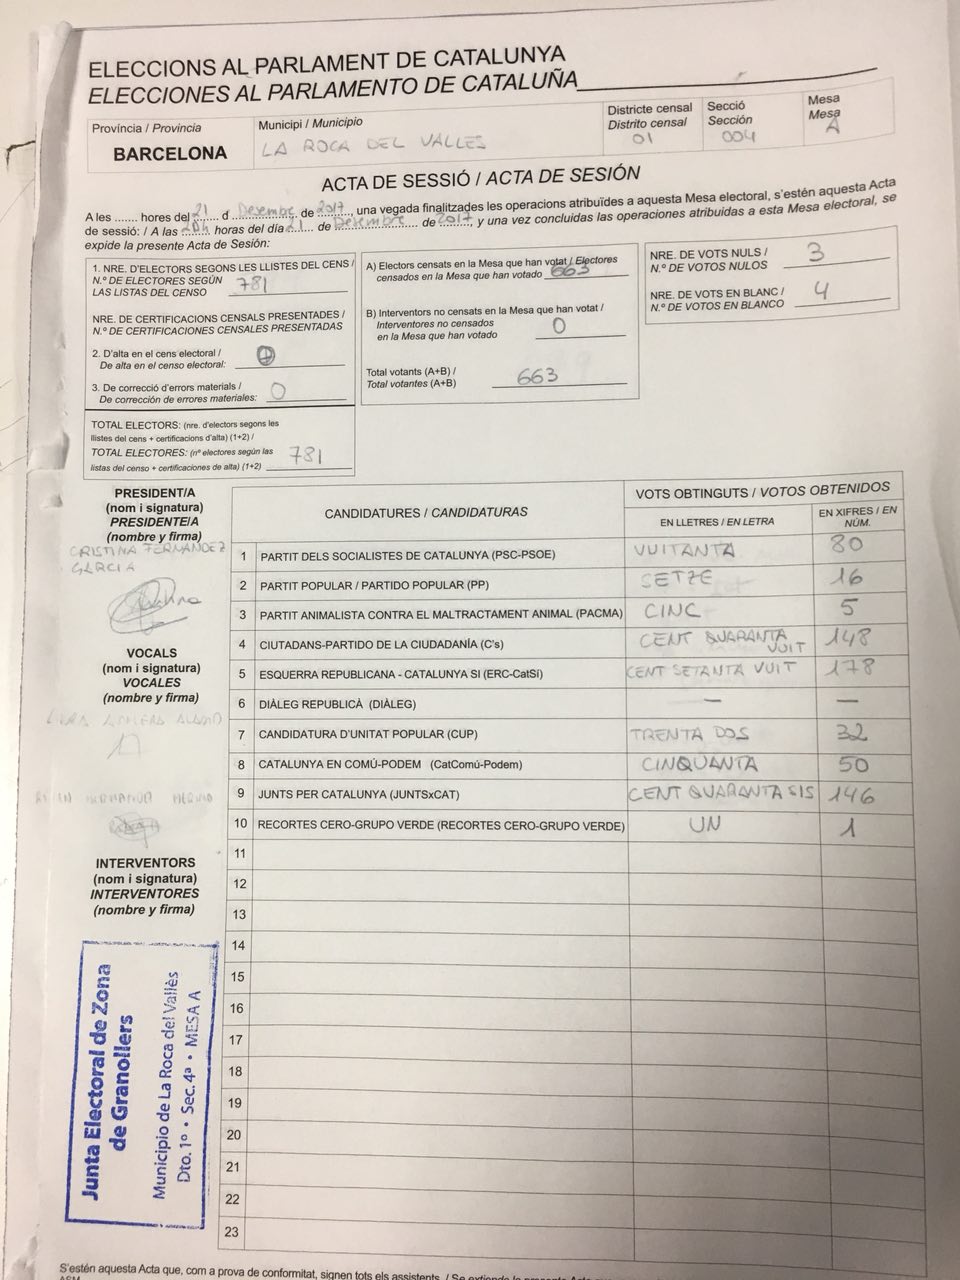 ELECCIONS AL PARLAMENT DE CATALUNYA
ELECCIONES AL PARLAMENTO DE CATALUÑA
Província / Provincia
BARCELONA
Municipi / Municipio
LA ROCA DEL VALLES
Districte censal
Distrito censal
01
Secció
Sección
004
Mesa
Mesa
A
ACTA DE SESSIÓ / ACTA DE SESIÓN
A les ....... hores del 21 d Desembre de 2017, una vegada finalitzades les operacions atribuïdes a aquesta Mesa electoral, s'estén aquesta Acta
de sessió: / A las 20h horas del día 21 de Desembre de 2017, y una vez concluidas las operaciones atribuidas a esta Mesa electoral, se
expide la presente Acta de Sesión:
1. NRE. D'ELECTORS SEGONS LES LLISTES DEL CENS /
N.º DE ELECTORES SEGÚN
LAS LISTAS DEL CENSO 781
NRE. DE CERTIFICACIONS CENSALS PRESENTADES /
N.º DE CERTIFICACIONES CENSALES PRESENTADAS
2. D'alta en el cens electoral /
De alta en el censo electoral:
3. De correcció d'errors materials /
De corrección de errores materiales: 0
TOTAL ELECTORS: (nre. d'electors segons les
llistes del cens + certificacions d'alta) (1+2) /
TOTAL ELECTORES: (nº electores según las
listas del censo + certificaciones de alta) (1+2) 781
A) Electors censats en la Mesa que han votat / Electores
censados en la Mesa que han votado 663
B) Interventors no censats en la Mesa que han votat /
Interventores no censados
en la Mesa que han votado 0
Total votants (A+B) /
Total votantes (A+B) 663
NRE. DE VOTS NULS /
N.º DE VOTOS NULOS 3
NRE. DE VOTS EN BLANC /
N.º DE VOTOS EN BLANCO 4
PRESIDENT/A
(nom i signatura)
PRESIDENTE/A
(nombre y firma)
CRISTINA FERNANDEZ
GARCIA
VOCALS
(nom i signatura)
VOCALES
(nombre y firma)
INTERVENTORS
(nom i signatura)
INTERVENTORES
(nombre y firma)
CANDIDATURES / CANDIDATURAS
VOTS OBTINGUTS / VOTOS OBTENIDOS
EN LLETRES / EN LETRA
EN XIFRES / EN NÚM.
1 PARTIT DELS SOCIALISTES DE CATALUNYA (PSC-PSOE) VUITANTA 80
2 PARTIT POPULAR / PARTIDO POPULAR (PP) SETZE 16
3 PARTIT ANIMALISTA CONTRA EL MALTRACTAMENT ANIMAL (PACMA) CINC 5
4 CIUTADANS-PARTIDO DE LA CIUDADANÍA (C's) CENT QUARANTA VUIT 148
5 ESQUERRA REPUBLICANA - CATALUNYA SI (ERC-CatSí) CENT SETANTA VUIT 178
6 DIÀLEG REPUBLICÀ (DIÀLEG) — —
7 CANDIDATURA D'UNITAT POPULAR (CUP) TRENTA DOS 32
8 CATALUNYA EN COMÚ-PODEM (CatComú-Podem) CINQUANTA 50
9 JUNTS PER CATALUNYA (JUNTSxCAT) CENT QUARANTA SIS 146
10 RECORTES CERO-GRUPO VERDE (RECORTES CERO-GRUPO VERDE) UN 1
11
12
13
14
15
16
17
18
19
20
21
22
23
Junta Electoral de Zona
de Granollers
Municipio de La Roca del Vallès
Dto. 1º • Sec. 4ª • MESA A
S'estén aquesta Acta que, com a prova de conformitat, signen tots els assistents. / Se extiende la presente Acta